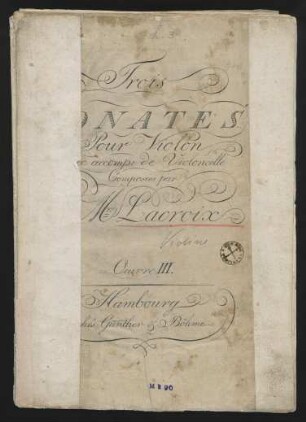 Trois
ONATES
Pour Violon
accomp: de Violoncelle
Composées par
M. Lacroix
Violino
Oeuvre III.
Hambourg
chés Günther & Böhme